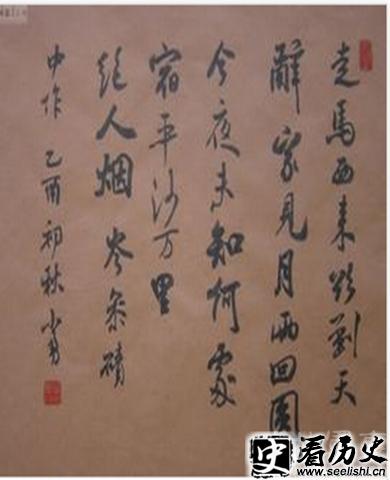 走馬西来欲到天
辭家見月两回圆
今夜未知何處
宿平沙万里
絕人烟岑参磧
中作 乙酉初秋
史 看历史
www.seelishi.com